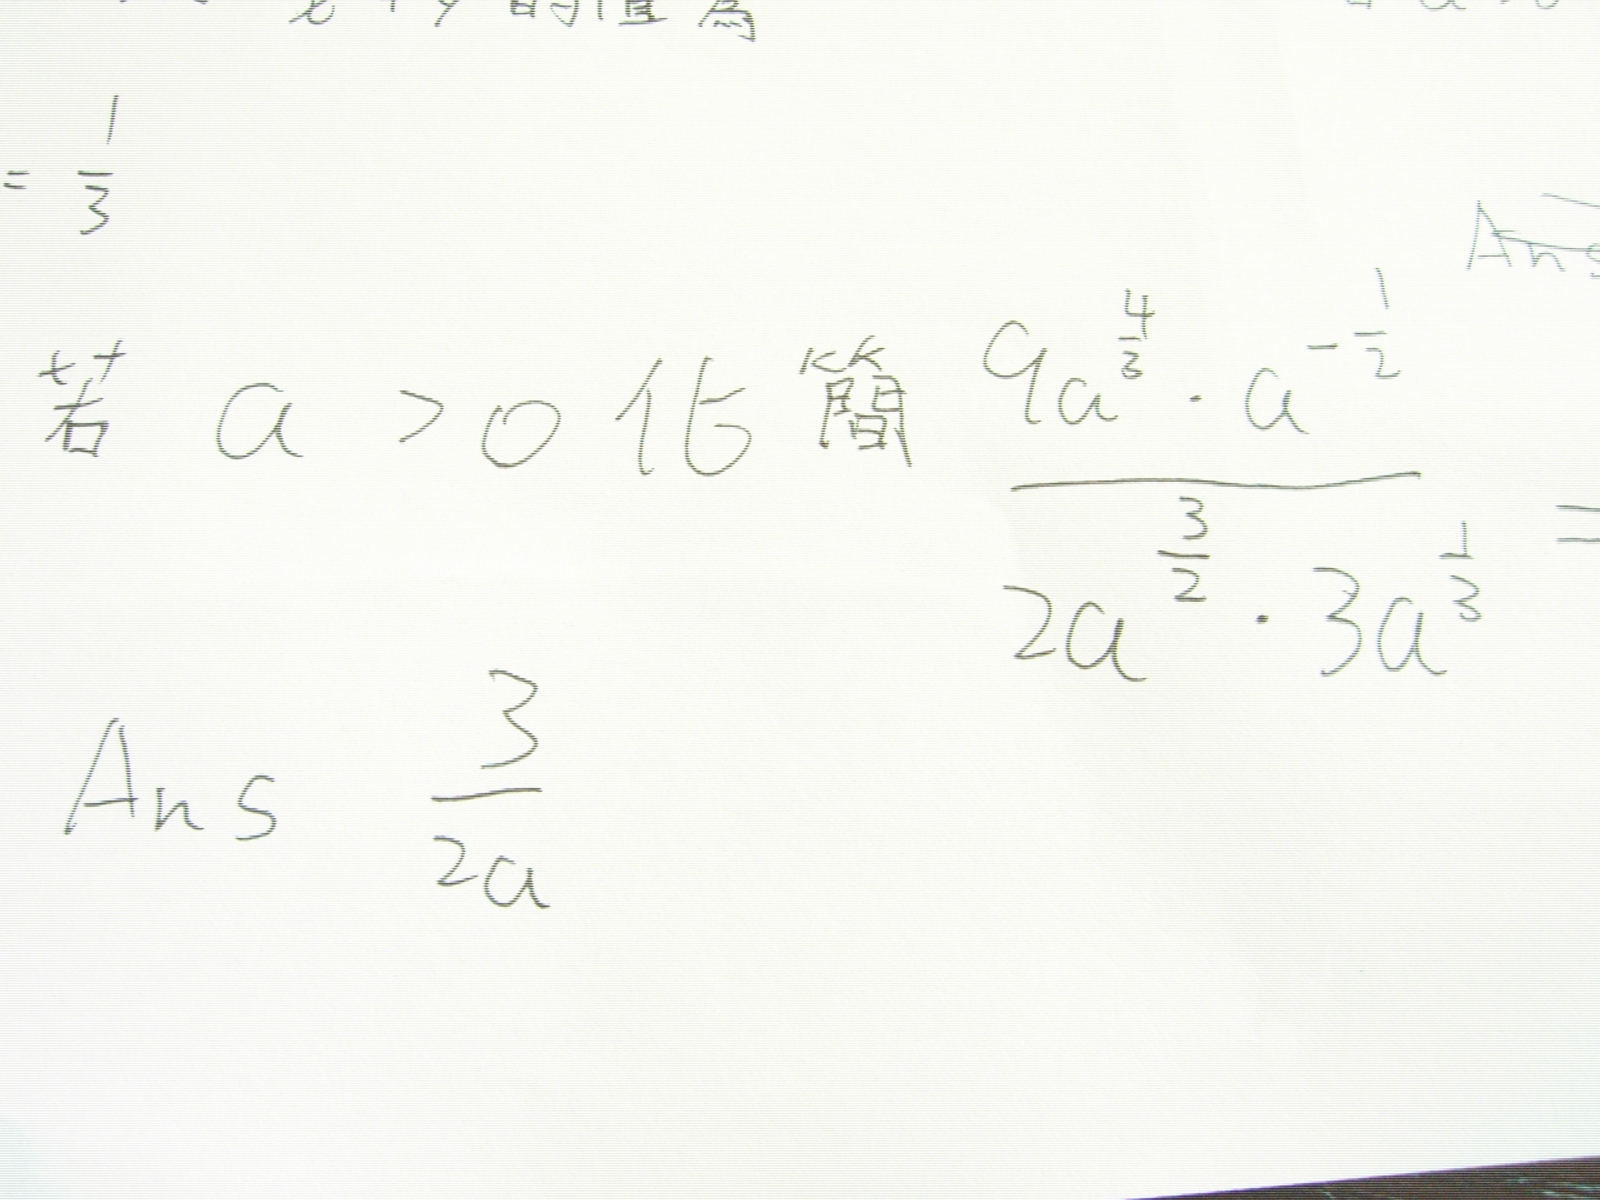 的值為
= 1/3
若 a > 0 化簡 \frac{9a^{\frac{4}{3}} \cdot a^{-\frac{1}{2}}}{2a^{\frac{3}{2}} \cdot 3a^{\frac{1}{3}}} =
Ans
Ans \frac{3}{2a}